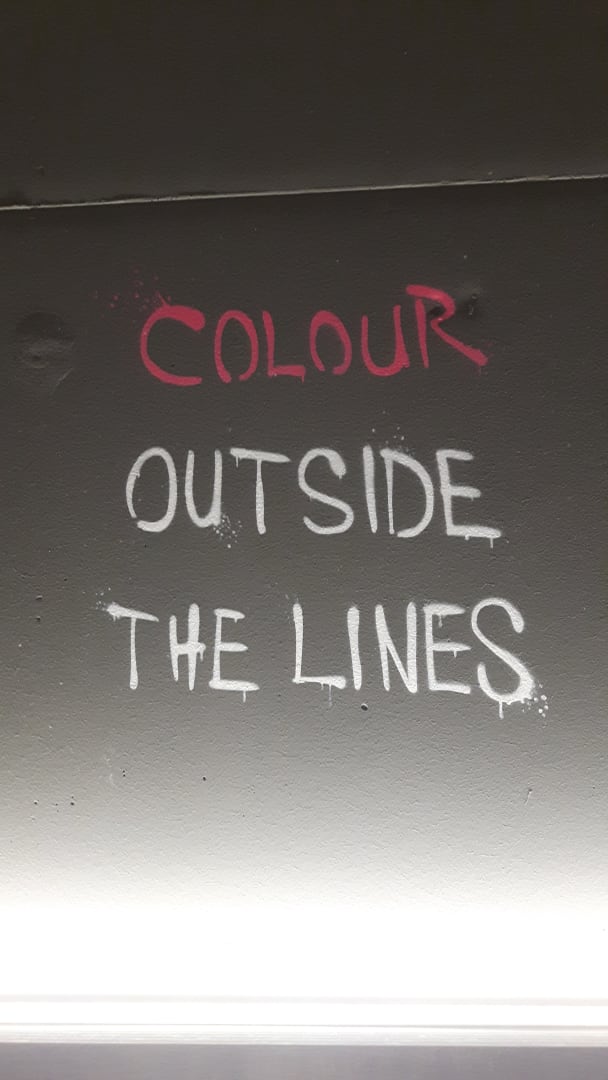 COLOUR
OUTSIDE
THE LINES